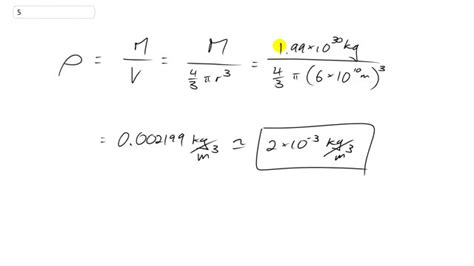 5
ρ = M/V = M/(4/3 π r³) = 1.99×10³⁰ kg/(4/3 π (6×10¹⁰ m)³)
= 0.002199 kg/m³ ≃ 2×10⁻³ kg/m³